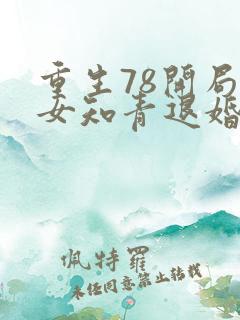 重生78开局
女知青退婚
佩特罗
未经同意禁止转载